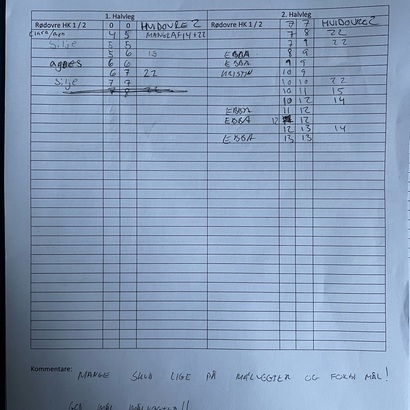 1. Halvleg 2. Halvleg
Rødovre HK 1 / 2 0 0 HVIDOVRE 2 Rødovre HK 1 / 2 7 7 HVIDOVRE 2
4 5 7 8 22
Silje 5 5 7 9 22
5 6 13 EBBA 8 9
agnes 6 6 EBBA 9 9
6 7 22 KRISTIN 10 9
Silje 7 7 10 10 22
10 11 15
10 12 14
EBBA 11 12
EBBA 12 12
12 13 14
EBBA 13 13
Kommentare: MANGE SKUD LIGE PÅ OG FORBI MÅL!